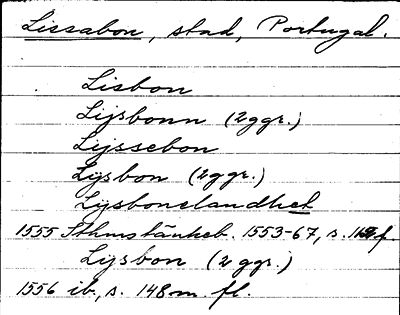 Lissabon, stad, Portugal.
Lisbon
Lijsbonn (2ggr.)
Lijssebon
Lysbon (2ggr.)
Lysbonelandhet
1555 Sthmstänkeb. 1553-67, s. f.
Lijsbon (2 ggr.)
1556 ib., s. 148 m. fl.